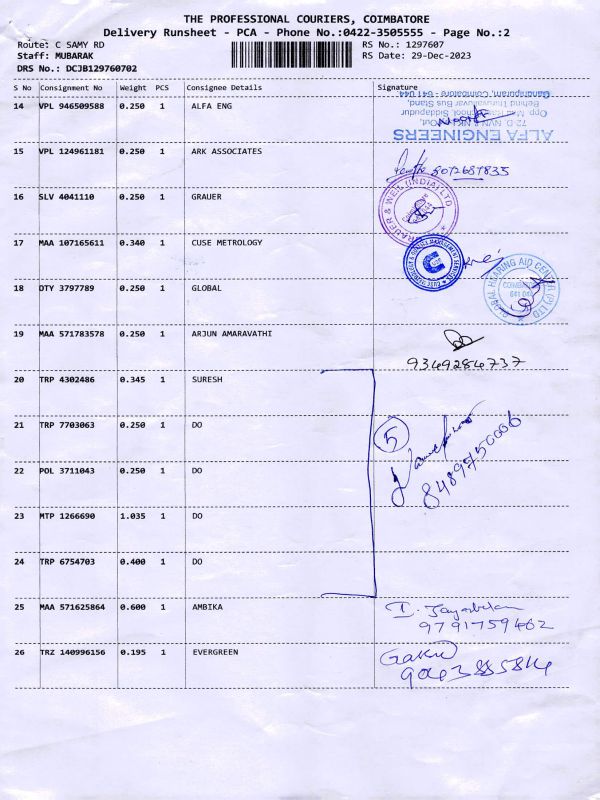 THE PROFESSIONAL COURIERS, COIMBATORE
Delivery Runsheet - PCA - Phone No.:0422-3505555 - Page No.:2
Route: C SAMY RD
RS No.: 1297607
Staff: MUBARAK
RS Date: 29-Dec-2023
DRS No.: DCJB129760702
S No Consignment No Weight PCS Consignee Details Signature
14 VPL 946509588 0.250 1 ALFA ENG
ALFA ENGINEERS
Opp. Mill
Behind Thiruvalluvar Bus Stand,
Gandhipuram, Coimbatore - 641 044
15 VPL 124961181 0.250 1 ARK ASSOCIATES
8072687835
16 SLV 4041110 0.250 1 GRAUER
GRAUER & WEIL (INDIA) LTD
17 MAA 107165611 0.340 1 CUSE METROLOGY
18 DTY 3797789 0.250 1 GLOBAL
GLOBAL HEARING AID CENTRE (P) LTD
COIMBATORE
641 044
19 MAA 571783578 0.250 1 ARJUN AMARAVATHI
9349284737
20 TRP 4302486 0.345 1 SURESH
21 TRP 7703063 0.250 1 DO
5
22 POL 3711043 0.250 1 DO
8489750006
23 MTP 1266690 1.035 1 DO
24 TRP 6754703 0.400 1 DO
25 MAA 571625864 0.600 1 AMBIKA
9791759462
26 TRZ 140996156 0.195 1 EVERGREEN